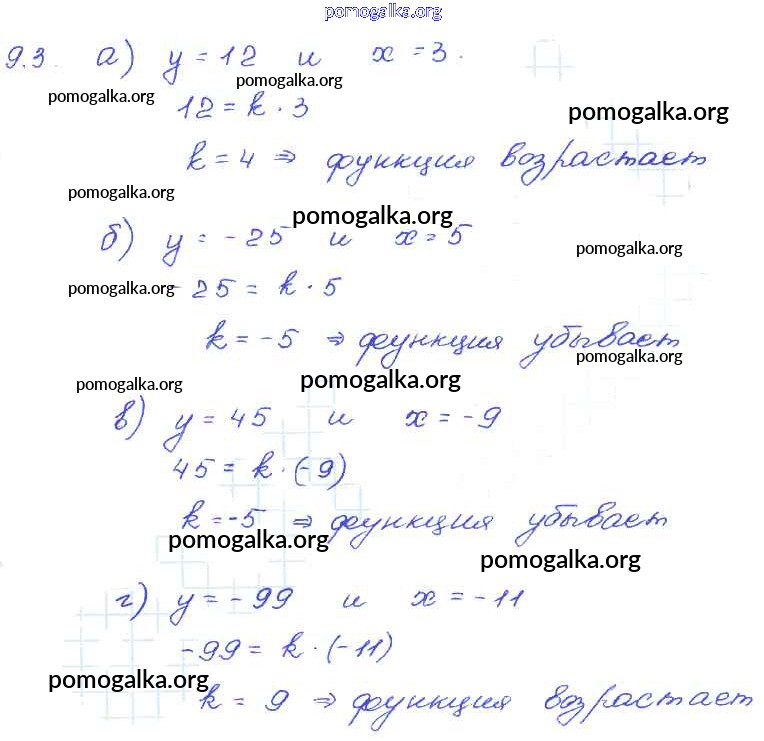 pomogalka.org
9.3. а) y = 12 и x = 3.
pomogalka.org
pomogalka.org
12 = k · 3
pomogalka.org
k = 4 ⇒ функция возрастает
pomogalka.org
pomogalka.org
б) y = -25 и x = 5
pomogalka.org
pomogalka.org
-25 = k · 5
k = -5 ⇒ функция убывает
pomogalka.org
pomogalka.org
pomogalka.org
в) y = 45 и x = -9
45 = k · (-9)
k = -5 ⇒ функция убывает
pomogalka.org
pomogalka.org
г) y = -99 и x = -11
-99 = k · (-11)
pomogalka.org
k = 9 ⇒ функция возрастает